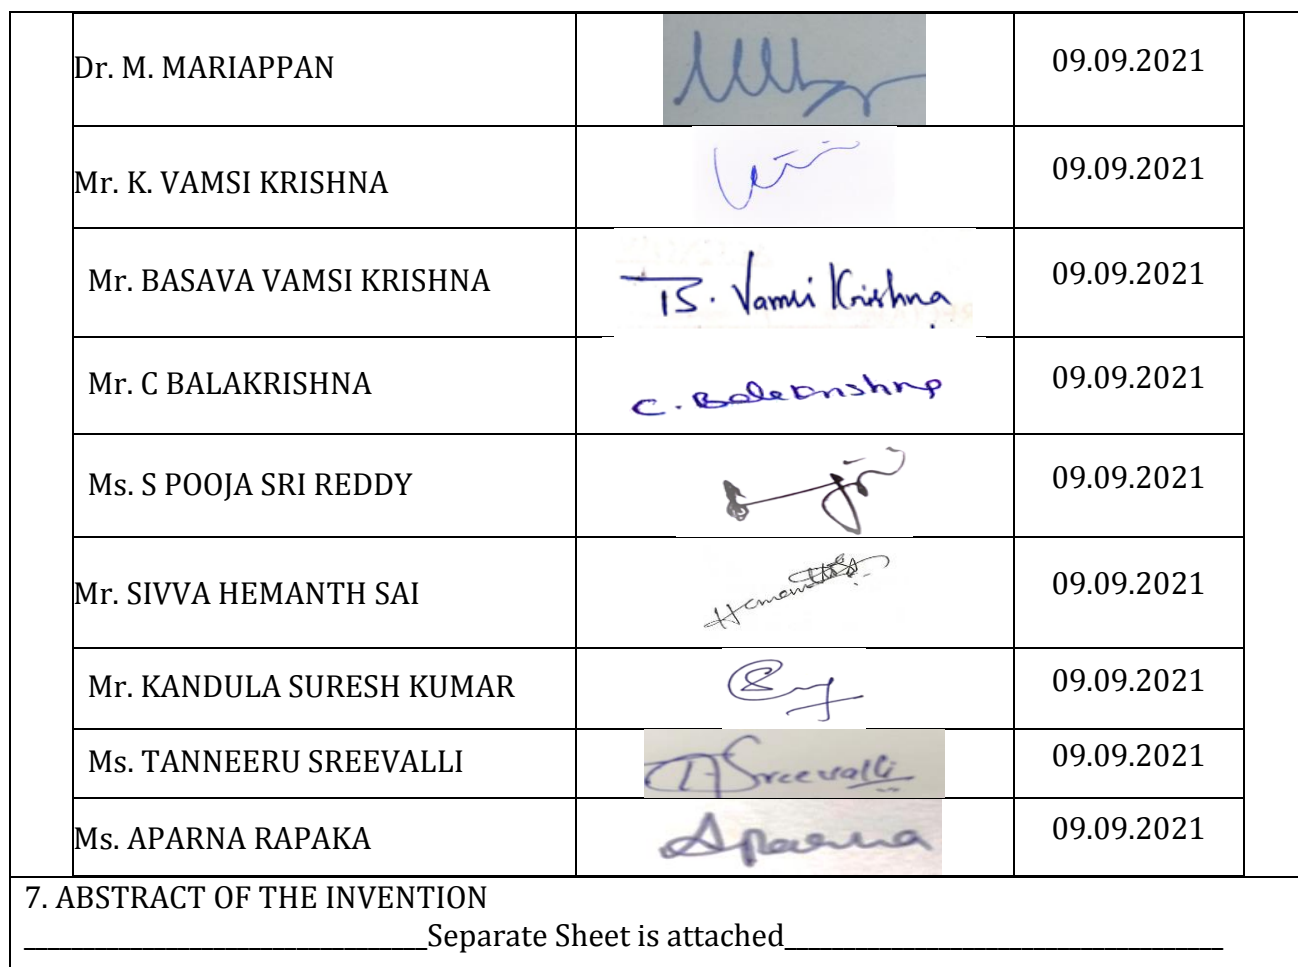 Dr. M. MARIAPPAN 09.09.2021
Mr. K. VAMSI KRISHNA 09.09.2021
Mr. BASAVA VAMSI KRISHNA B. Vamsi Krishna 09.09.2021
Mr. C BALAKRISHNA C. Balakrishna 09.09.2021
Ms. S POOJA SRI REDDY 09.09.2021
Mr. SIVVA HEMANTH SAI 09.09.2021
Mr. KANDULA SURESH KUMAR 09.09.2021
Ms. TANNEERU SREEVALLI T Sreevalli 09.09.2021
Ms. APARNA RAPAKA Aparna 09.09.2021
7. ABSTRACT OF THE INVENTION
Separate Sheet is attached